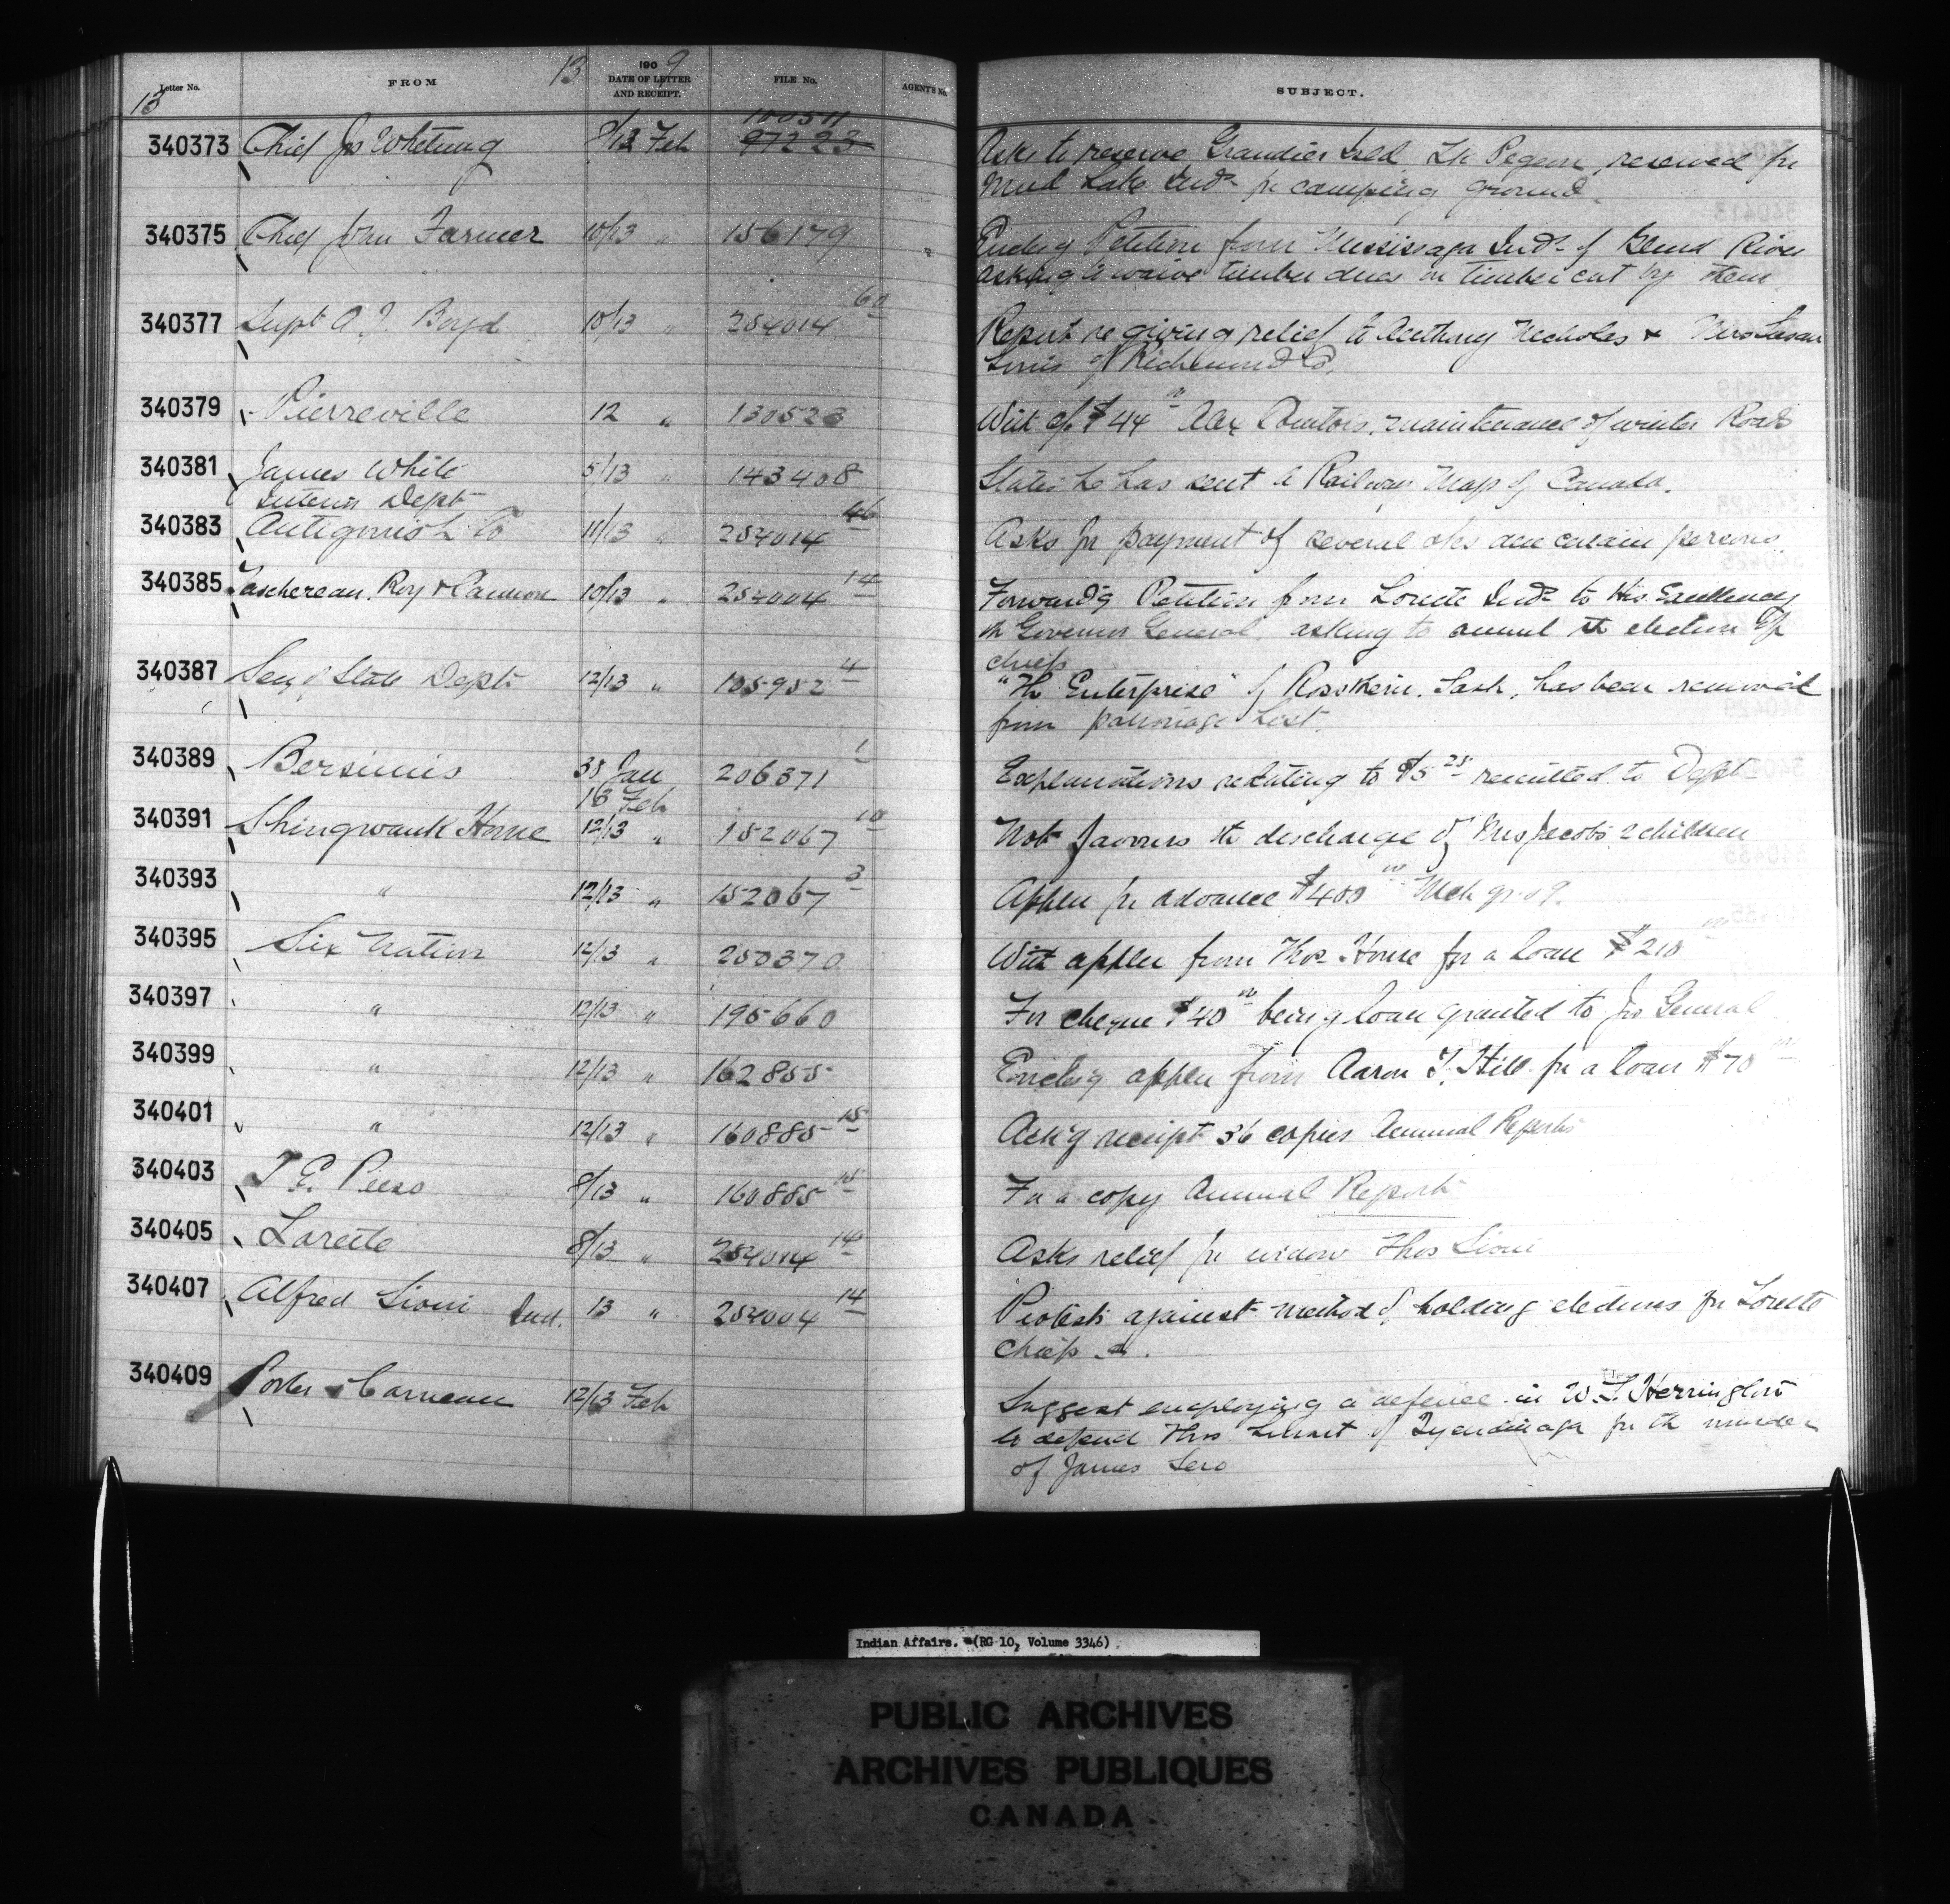 13 1909
Letter No. FROM DATE OF LETTER AND RECEIPT. FILE No. AGENTS No. SUBJECT.
13
100511
340373 Chief Jos Whetung 8/12 Feb 97223 Asks to reserve Grandier Isld. reserved for
Mud Lake Inds for camping ground.
340375 Chief John Farmer 10/13 " 156179 Enclog Petition from Mississaga Inds of Blind River
asking to waive timber dues on timber cut by them.
340377 Supt A. J. Boyd 10/13 " 254014 60 Report re giving relief to Anthony Nicholas & Mrs Susan
of Richmond Co.
340379 Pierreville 12 " 130523 With of $44 Alex maintenance of winter Road
340381 James White 5/13 " 143408 States he has sent a Railway Map of Canada.
Interior Dept
340383 Antigonish Co 11/13 " 254014 46 Asks for payment of several due certain persons.
340385 Taschereau, Roy & Cannon 10/13 " 254004 14 Forwardg Petition from Lorette Inds to His Excellency
the Governor General, asking to annul the election of
chiefs
340387 Secy of State Dept 12/13 " 105952 4 "The Enterprise" of Rosthern, Sask, has been removed
from patronage List.
340389 Bersimis 30 Jan 206371 1 Explanations relating to remitted to Dept
13 Feb
340391 Shingwauk Home 12/13 " 152067 10 Not favours the discharge of Mrs Jacobs 2 children
340393 " 12/13 " 152067 3 Applcn for advance $400 Mch qr 09.
340395 Six Nation 12/13 " 250370 With applcn from Thos. House for a loan $210
340397 " 12/13 " 195660 For cheque $40 being loan granted to Jos General
340399 " 12/13 " 162855 Enclog applcn from Aaron J. Hill for a loan $70
340401 " 12/13 " 160885 15 Ack'g receipt 36 copies Annual Reports
340403 J E. 8/13 " 160885 15 For a copy Annual Report
340405 Lorette 8/13 " 254014 14 Asks relief for widow Thos Sioui
340407 Alfred Sioui Ind. 13 " 254004 14 Protests against method of holding elections for Lorette
Chiefs
340409 Porter & Carnew 12/13 Feb Suggest employing a defence in W. S. Herrington
to defend Thos of Tyendinaga for the murder
of James Sero
Indian Affairs. (RG 10, Volume 3346)
PUBLIC ARCHIVES
ARCHIVES PUBLIQUES
CANADA